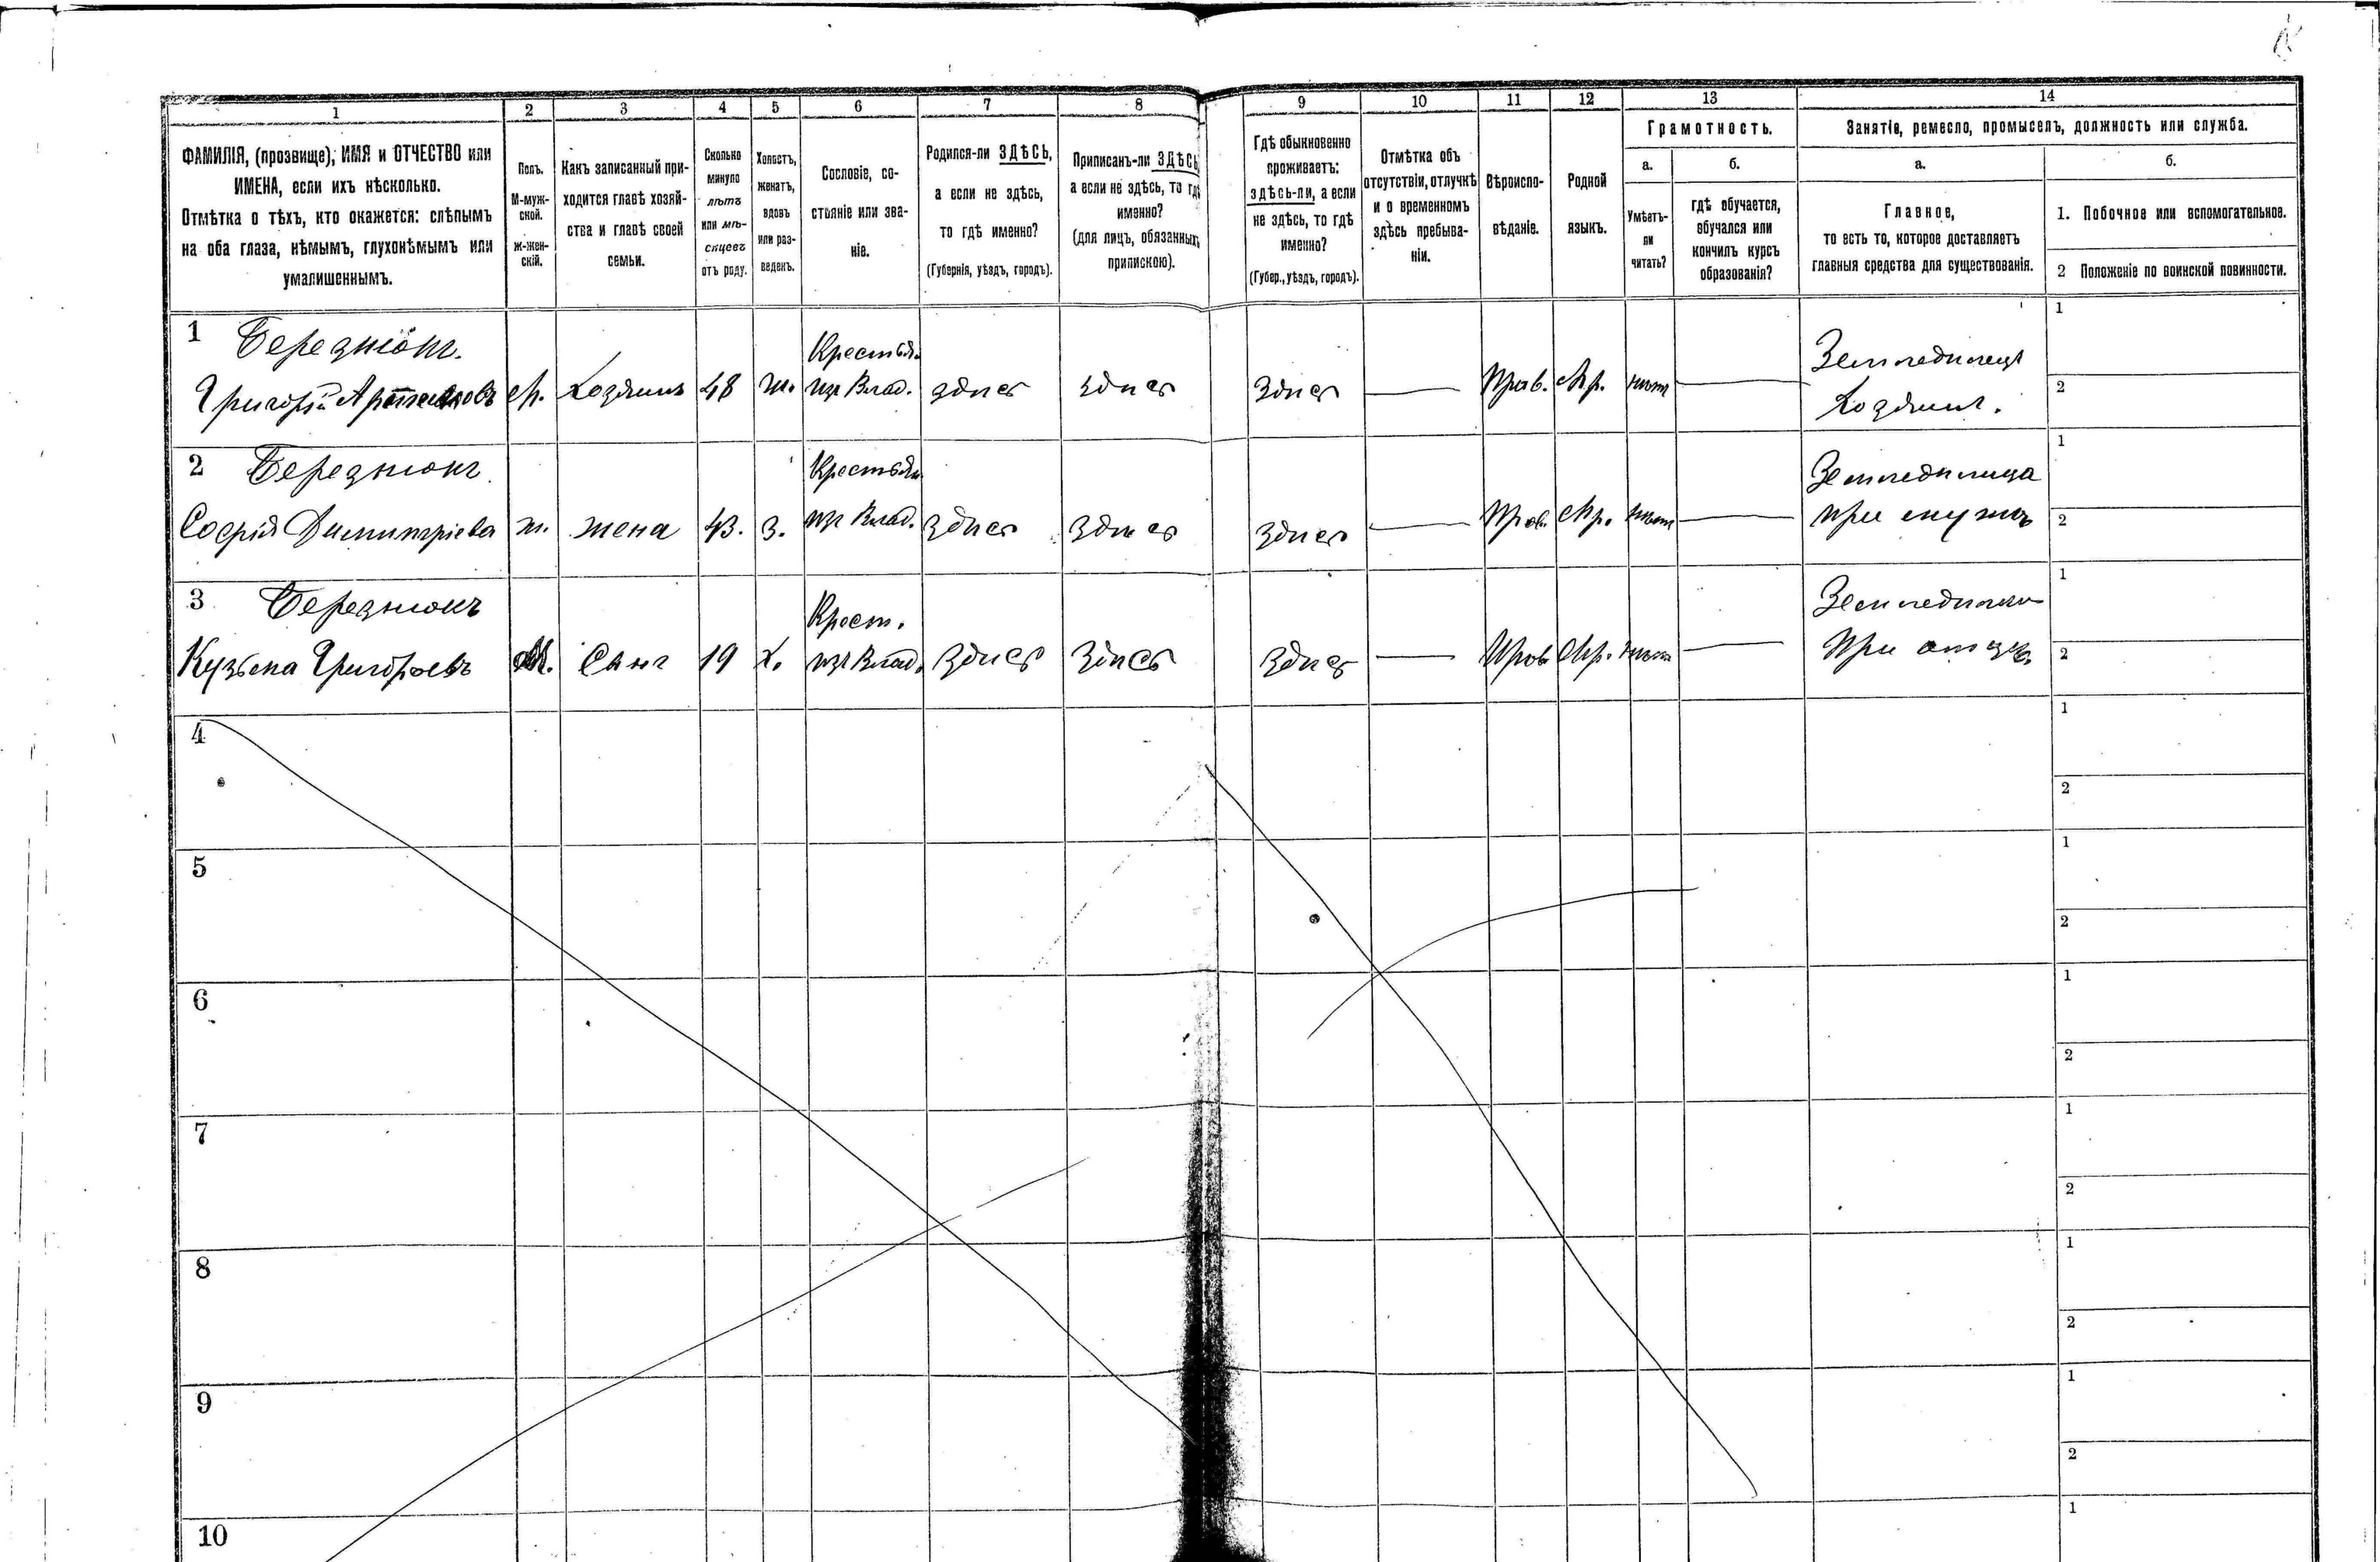 1 2 3 4 5 6 7 8 9 10 11 12 13 14
ФАМИЛІЯ, (прозвище), ИМЯ и ОТЧЕСТВО или
ИМЕНА, если ихъ нѣсколько.
Отмѣтка о тѣхъ, кто окажется: слѣпымъ
на оба глаза, нѣмымъ, глухонѣмымъ или
умалишеннымъ.
Полъ.
М-муж-
ской.
Ж-жен-
скій.
Какъ записанный при-
ходится главѣ хозяй-
ства и главѣ своей
семьи.
Сколько
минуло
лѣтъ
или мѣ-
сяцевъ
отъ роду.
Холостъ,
женатъ,
вдовъ
или раз-
веденъ.
Сословіе, со-
стояніе или зва-
ніе.
Родился-ли ЗДѢСЬ,
а если не здѣсь,
то гдѣ именно?
(Губернія, уѣздъ, городъ).
Приписанъ-ли ЗДѢСЬ,
а если не здѣсь, то гдѣ
именно?
(для лицъ, обязанныхъ
припискою).
Гдѣ обыкновенно
проживаетъ:
здѣсь-ли, а если
не здѣсь, то гдѣ
именно?
(Губер., уѣздъ, городъ).
Отмѣтка объ
отсутствіи, отлучкѣ
и о временномъ
здѣсь пребыва-
ніи.
Вѣроиспо-
вѣданіе.
Родной
языкъ.
Грамотность.
а.
Умѣетъ-
ли
читать?
б.
гдѣ обучается,
обучался или
кончилъ курсъ
образованія?
Занятіе, ремесло, промыселъ, должность или служба.
а.
Главное,
то есть то, которое доставляетъ
главныя средства для существованія.
б.
1. Побочное или вспомогательное.
2 Положеніе по воинской повинности.
1 Березнюкъ. Крестьян. Земледѣлецъ 1
Григорій м. Хозяинъ 48 ж. изъ Влад. здѣсь здѣсь здѣсь — Прав. Мр. нѣтъ — Хозяинъ. 2
2 Березнюкъ Крестьян. Земледѣлица 1
Софія Димитріева ж. жена 43. З. изъ Влад. здѣсь здѣсь здѣсь — Прав. Мр. нѣтъ — при мужѣ 2
3 Березнюкъ Крест. 1
Кузьма Григорьевъ М. Сынъ 19 Х. изъ Влад. здѣсь здѣсь здѣсь — Прав. Мр. нѣтъ — при отцѣ 2
4 1
2
5 1
2
6 1
2
7 1
2
8 1
2
9 1
2
10 1